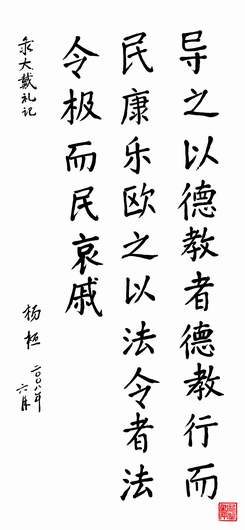 导之以德教者德教行而
民康乐欧之以法令者法
令极而民哀戚
录大戴礼记
杨桓
二〇〇八年
六月